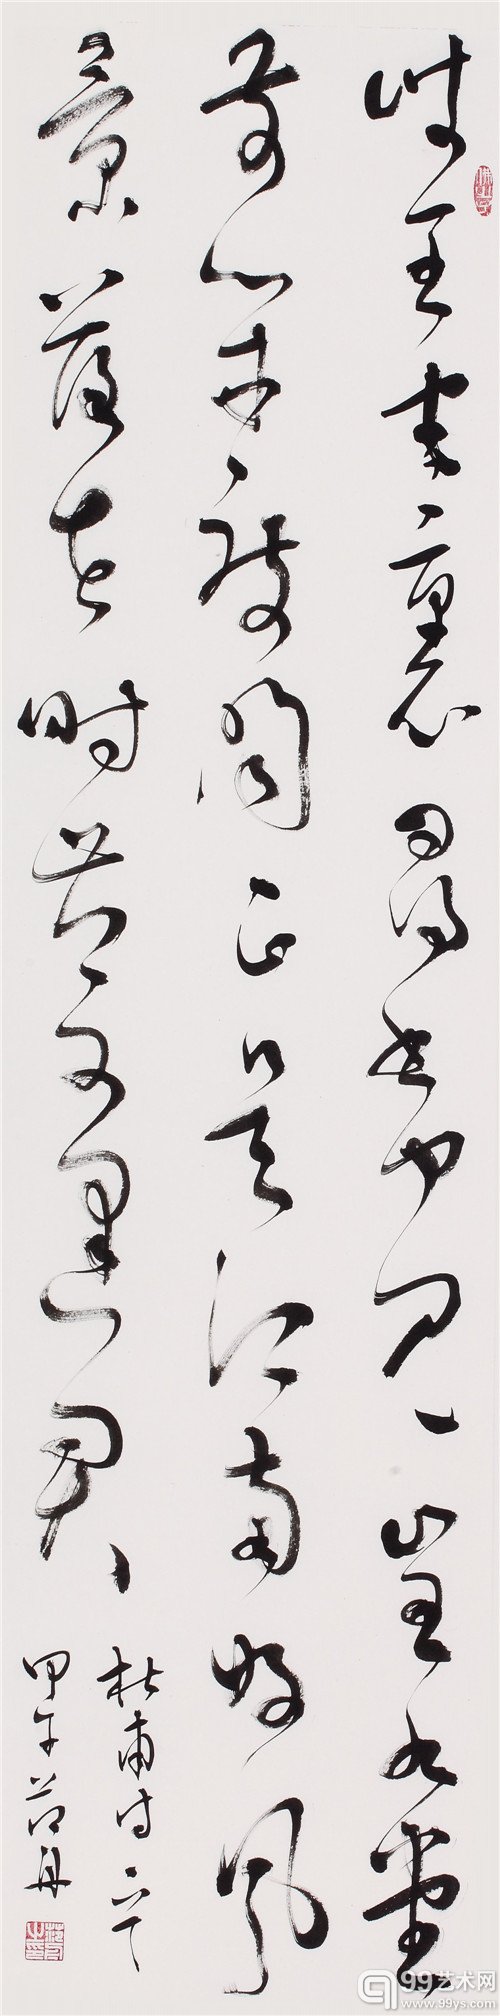 岐王宅裏尋常見崔九堂
前幾度聞正是江南好風
景落花時節又逢君
杜甫诗
甲午
99艺术网
www.99ys.com